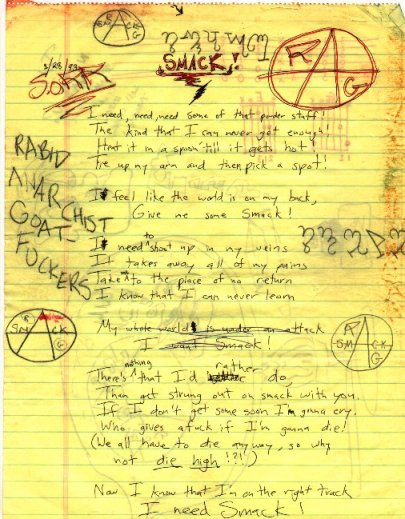 SMACK!
R A G
3/28/93
I need, need, need some of that powder stuff!
The kind that I can never get enough!
Heat it in a spoon 'till it gets hot!
Tie up my arm and then pick a spot!
RABID
ANARCHIST
GOAT
FUCKERS
I feel like the world is on my back,
Give me some Smack!
I need to shoot up in my veins
It takes away all of my pains
Take to the place of no return
I know that I can never learn
SM A CK
G
R
SM A CK
G
My whole world is under an attack
I want Smack!
There's nothing that I'd rather do,
Than get strung out on smack with you.
If I don't get some soon I'm gonna cry.
Who gives a fuck if I'm gonna die!
(We all have to die anyway, so why
not die high!?!!)
Now I know that I'm on the right track
I need Smack!